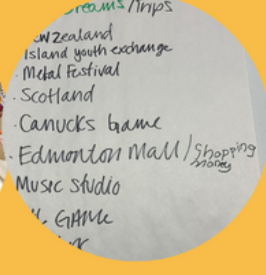 Dreams/Trips
ewZealand
Island youth exchange
· Metal Festival
· Scotland
· Canucks Game
· Edmonton Mall/Shopping money
Music Studio
GAME